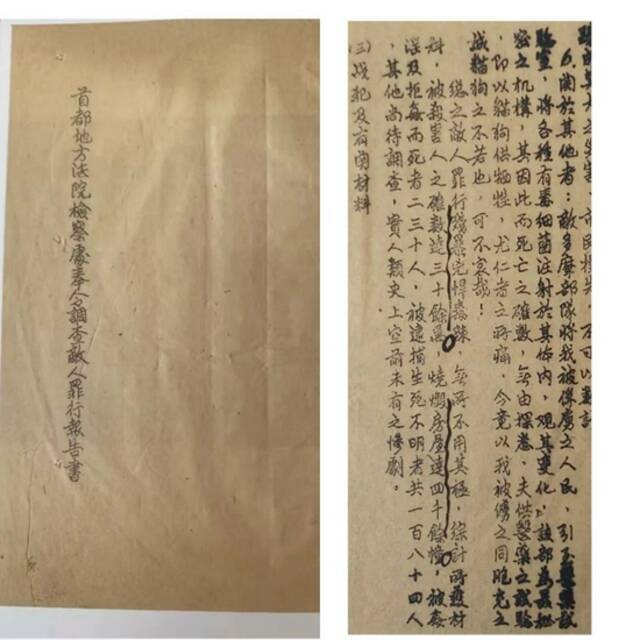 首都地方法院檢察處奉令調查敵人罪行報告書
不可以數計
6.關於其他者：敵多摩部隊將我被俘虜之人民，引至醫藥試
驗室，將各種有毒細菌注射於其体內，觀其變化，該部為最秘
密之机構，其因此而死亡之確數，無由探悉，夫供醫藥之試驗
，即以貓狗供牺牲，尤仁者之所痛，今竟以我被虜之同胞充之
誠貓狗之不若也，可不哀哉！
總之敵人罪行殘暴兇悍毒辣，無所不用其極，綜計所獲材
料，被殺害人之確數達三十餘萬，燒燬房屋達四千餘幢，被姦
淫及拒姦而死者二三十人，被逮捕生死不明者共一百八十四人
，其他尚待調查，實人類史上空前未有之慘劇。
(三)战犯及有関材料